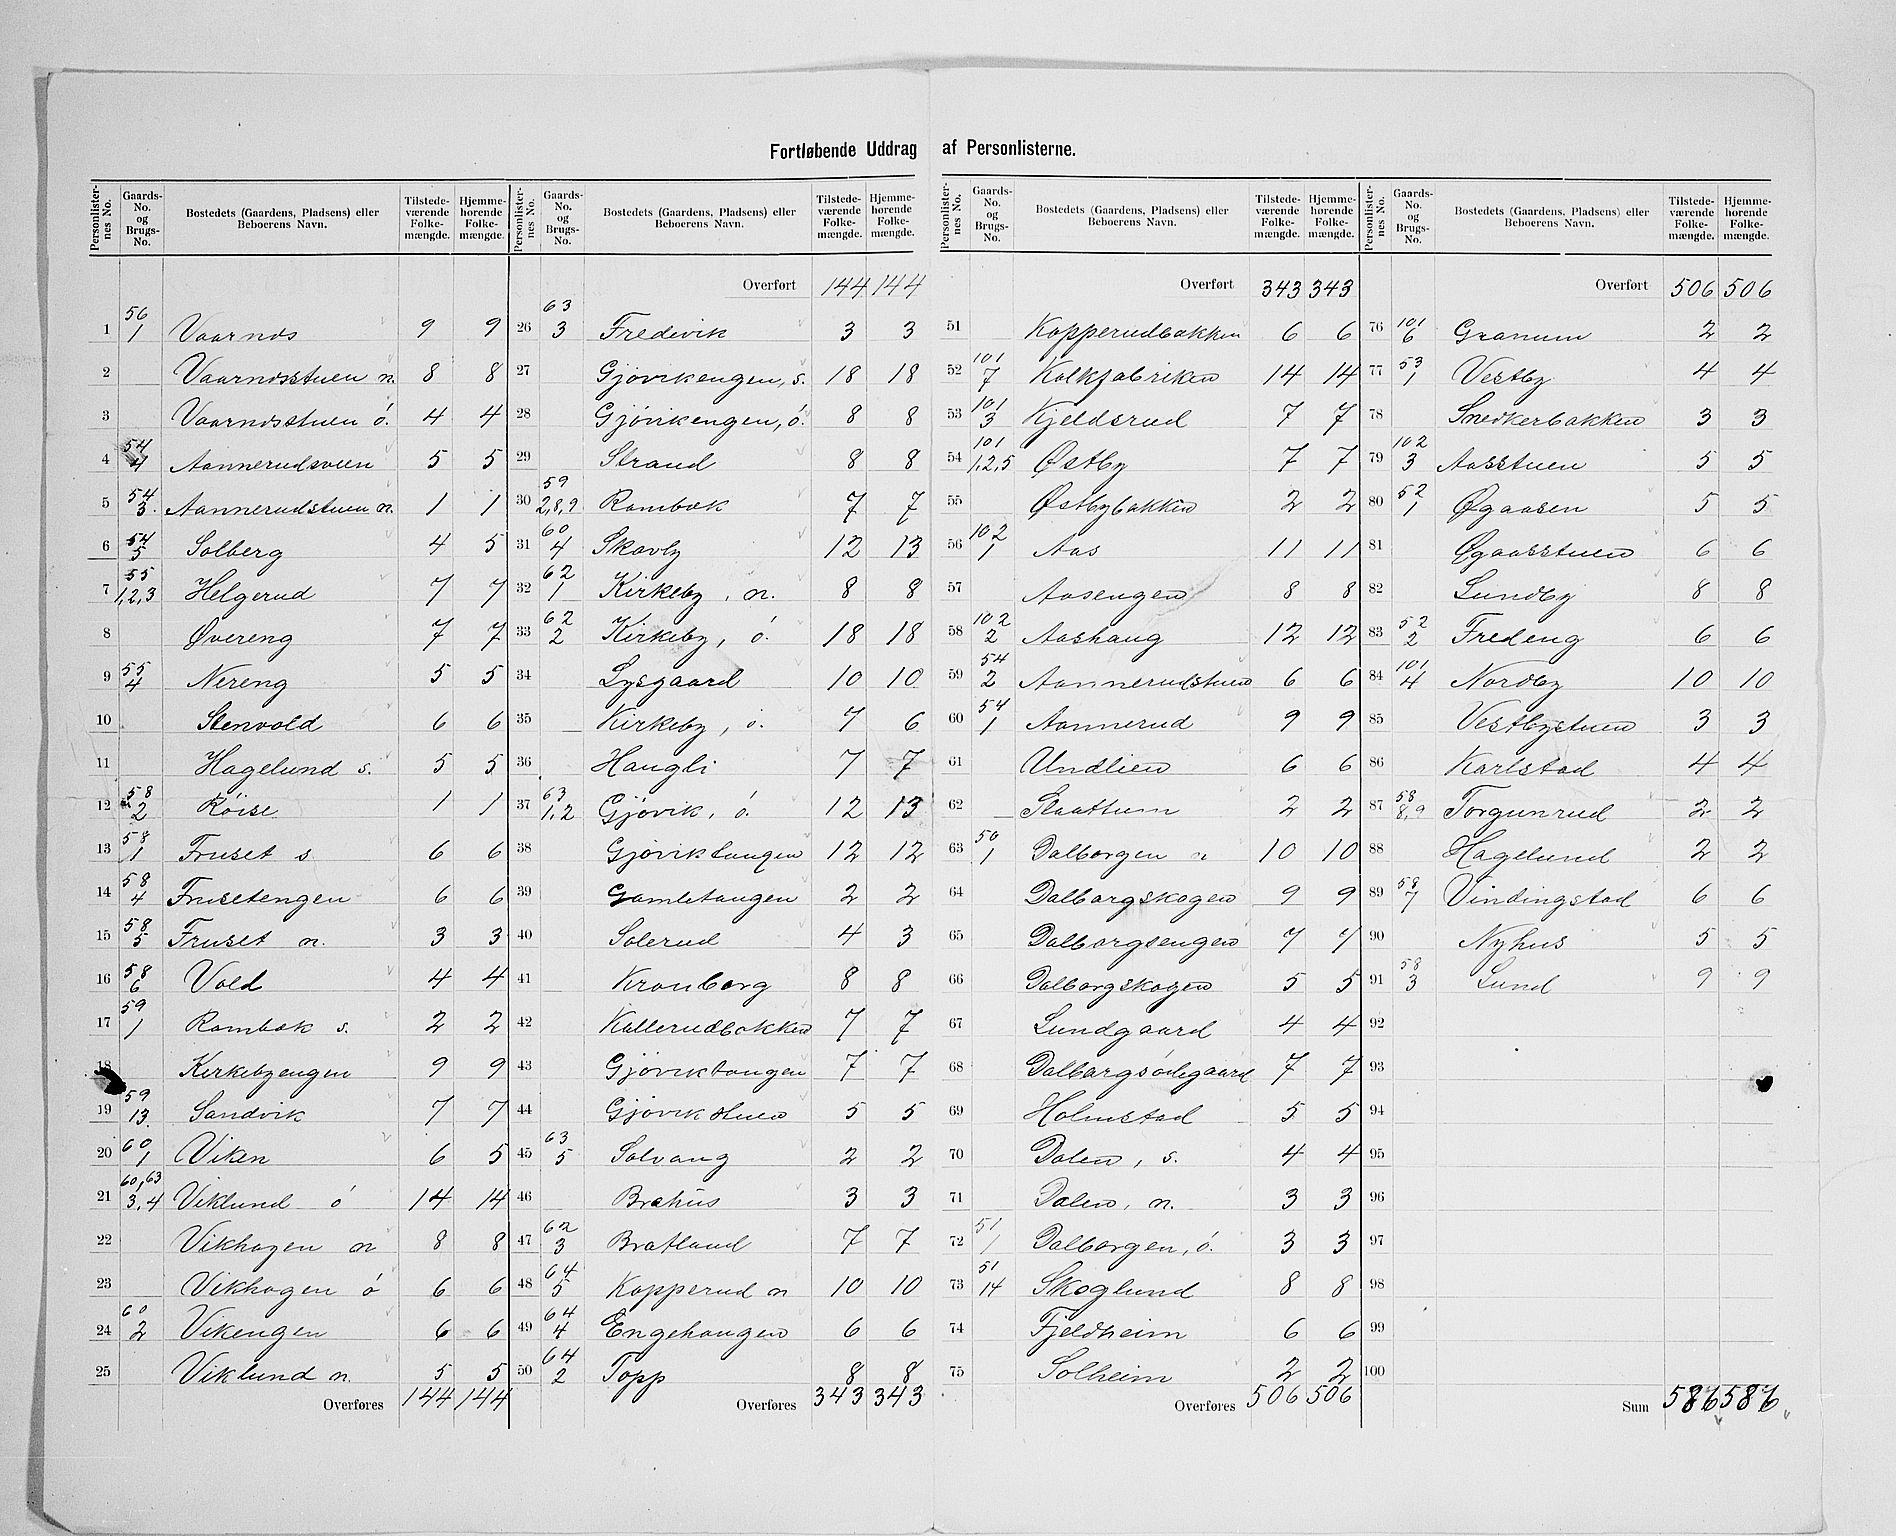 Fortløbende Uddrag af Personlisterne.
Personlisternes No. Gaards-No. og Brugs-No. Bostedets (Gaardens, Pladsens) eller Beboerens Navn. Tilstedeværende Folkemængde. Hjemmehørende Folkemængde.
1 56/1 Vaarnds 9 9
2 Vaarndsstuen n. 8 8
3 Vaarndsstuen ó. 4 4
4 54/4 Aannerudsveen 5 5
5 54/3 Aannerudstuen n. 1 1
6 54/5 Solberg 4 5
7 55/1,2,3 Helgerud 7 7
8 Øvereng 7 7
9 55/4 Nereng 5 5
10 Stenvold 6 6
11 Hagelund s. 5 5
12 58/2 Röise 1 1
13 58/1 Fruset s. 6 6
14 58/4 Frusetengen 6 6
15 58/5 Fruset n. 3 3
16 58/6 Vold 4 4
17 59/1 Rambæk s. 2 2
18 Kirkebyengen 9 9
19 59/13. Sandvik 7 7
20 60/1 Viken 6 5
21 60,63/3,4 Viklund ó 14 14
22 Vikhagen n 8 8
23 Vikhagen ó 6 6
24 60/2 Vikengen 6 6
25 Viklund n. 5 5
Overføres 144 144
Personlisternes No. Gaards-No. og Brugs-No. Bostedets (Gaardens, Pladsens) eller Beboerens Navn. Tilstedeværende Folkemængde. Hjemmehørende Folkemængde.
Overført 144 144
26 63/3 Fredvik 3 3
27 Gjøvikengen, s. 18 18
28 Gjóvikengen, ó. 8 8
29 Strand 8 8
30 59/2,8,9 Rambæk 7 7
31 60/4 Skavby 12 13
32 62/1 Kirkeby, n. 8 8
33 62/2 Kirkeby, ó. 18 18
34 Lysgaard 10 10
35 Kirkeby, ó. 7 6
36 Haugli 7 7
37 63/1,2 Gjóvik, ó. 12 13
38 Gjóviktangen 12 12
39 Gamletangen 2 2
40 Solerud 4 3
41 Kronborg 8 8
42 Kallerudbakken 7 7
43 Gjóviktangen 7 7
44 Gjóvikstuen 5 5
45 63/5 Solvang 2 2
46 Brahus 3 3
47 62/3 Bratland 7 7
48 64/5 Kopperud n 10 10
49 64/4 Engehaugen 6 6
50 64/2 Topp 8 8
Overføres 343 343
Personlisternes No. Gaards-No. og Brugs-No. Bostedets (Gaardens, Pladsens) eller Beboerens Navn. Tilstedeværende Folkemængde. Hjemmehørende Folkemængde.
Overført 343 343
51 Kopperudbakken 6 6
52 101/7 Kalkfabriken 14 14
53 101/3 Kjeldsrud 7 7
54 101/1,2,5 Østby 7 7
55 Østbybakken 2 2
56 102/1 Aas 11 11
57 Aasengen 8 8
58 102/2 Aashaug 12 12
59 54/2 Aannerudstuen 6 6
60 54/1 Aannerud 9 9
61 Undlien 6 6
62 Slaattum 2 2
63 50/1 Dalborgen n 10 10
64 Dalborgskogen 9 9
65 Dalborgsengen 7 7
66 Dalborgskogen 5 5
67 Lundgaard 4 4
68 Dalborgsódegaard 7 7
69 Holmstad 5 5
70 Dalen, s. 4 4
71 Dalen, n. 3 3
72 51/1 Dalborgen, ó. 3 3
73 51/14 Skoglund 8 8
74 Fjeldheim 6 6
75 Solheim 2 2
Overføres 506 506
Personlisternes No. Gaards-No. og Brugs-No. Bostedets (Gaardens, Pladsens) eller Beboerens Navn. Tilstedeværende Folkemængde. Hjemmehørende Folkemængde.
Overført 506 506
76 101/6 Granum 2 2
77 53/1 Vestby 4 4
78 Snedkerbakken 3 3
79 102/3 Aasstuen 5 5
80 52/1 Øgaasen 5 5
81 Øgaasstuen 6 6
82 Lundby 8 8
83 52/2 Fredeng 6 6
84 101/4 Nordby 10 10
85 Vestbystuen 3 3
86 Karlstad 4 4
87 58/8,9 Torgunrud 2 2
88 Hagelund 2 2
89 58/7 Vindingstad 6 6
90 Nyhus 5 5
91 58/3 Lund 9 9
92
93
94
95
96
97
98
99
100
Sum 586 586